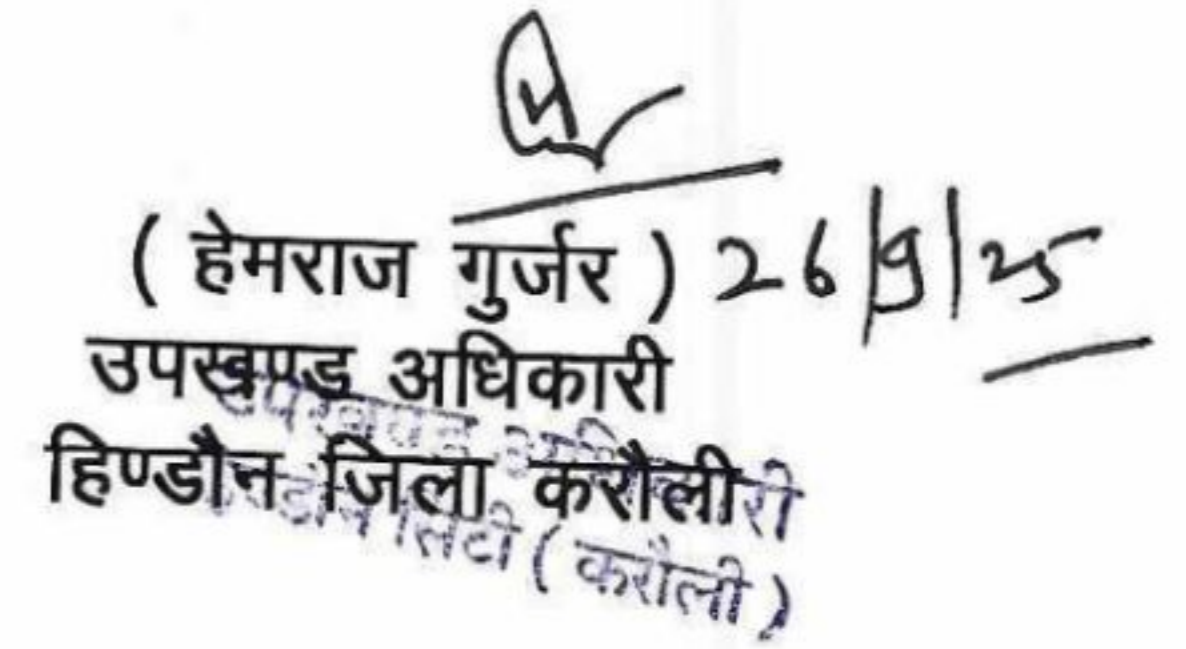 ( हेमराज गुर्जर ) 26/9/25
उपखण्ड अधिकारी
हिण्डौन जिला करौली
उपखण्ड अधिकारी
सिटी ( करौली )